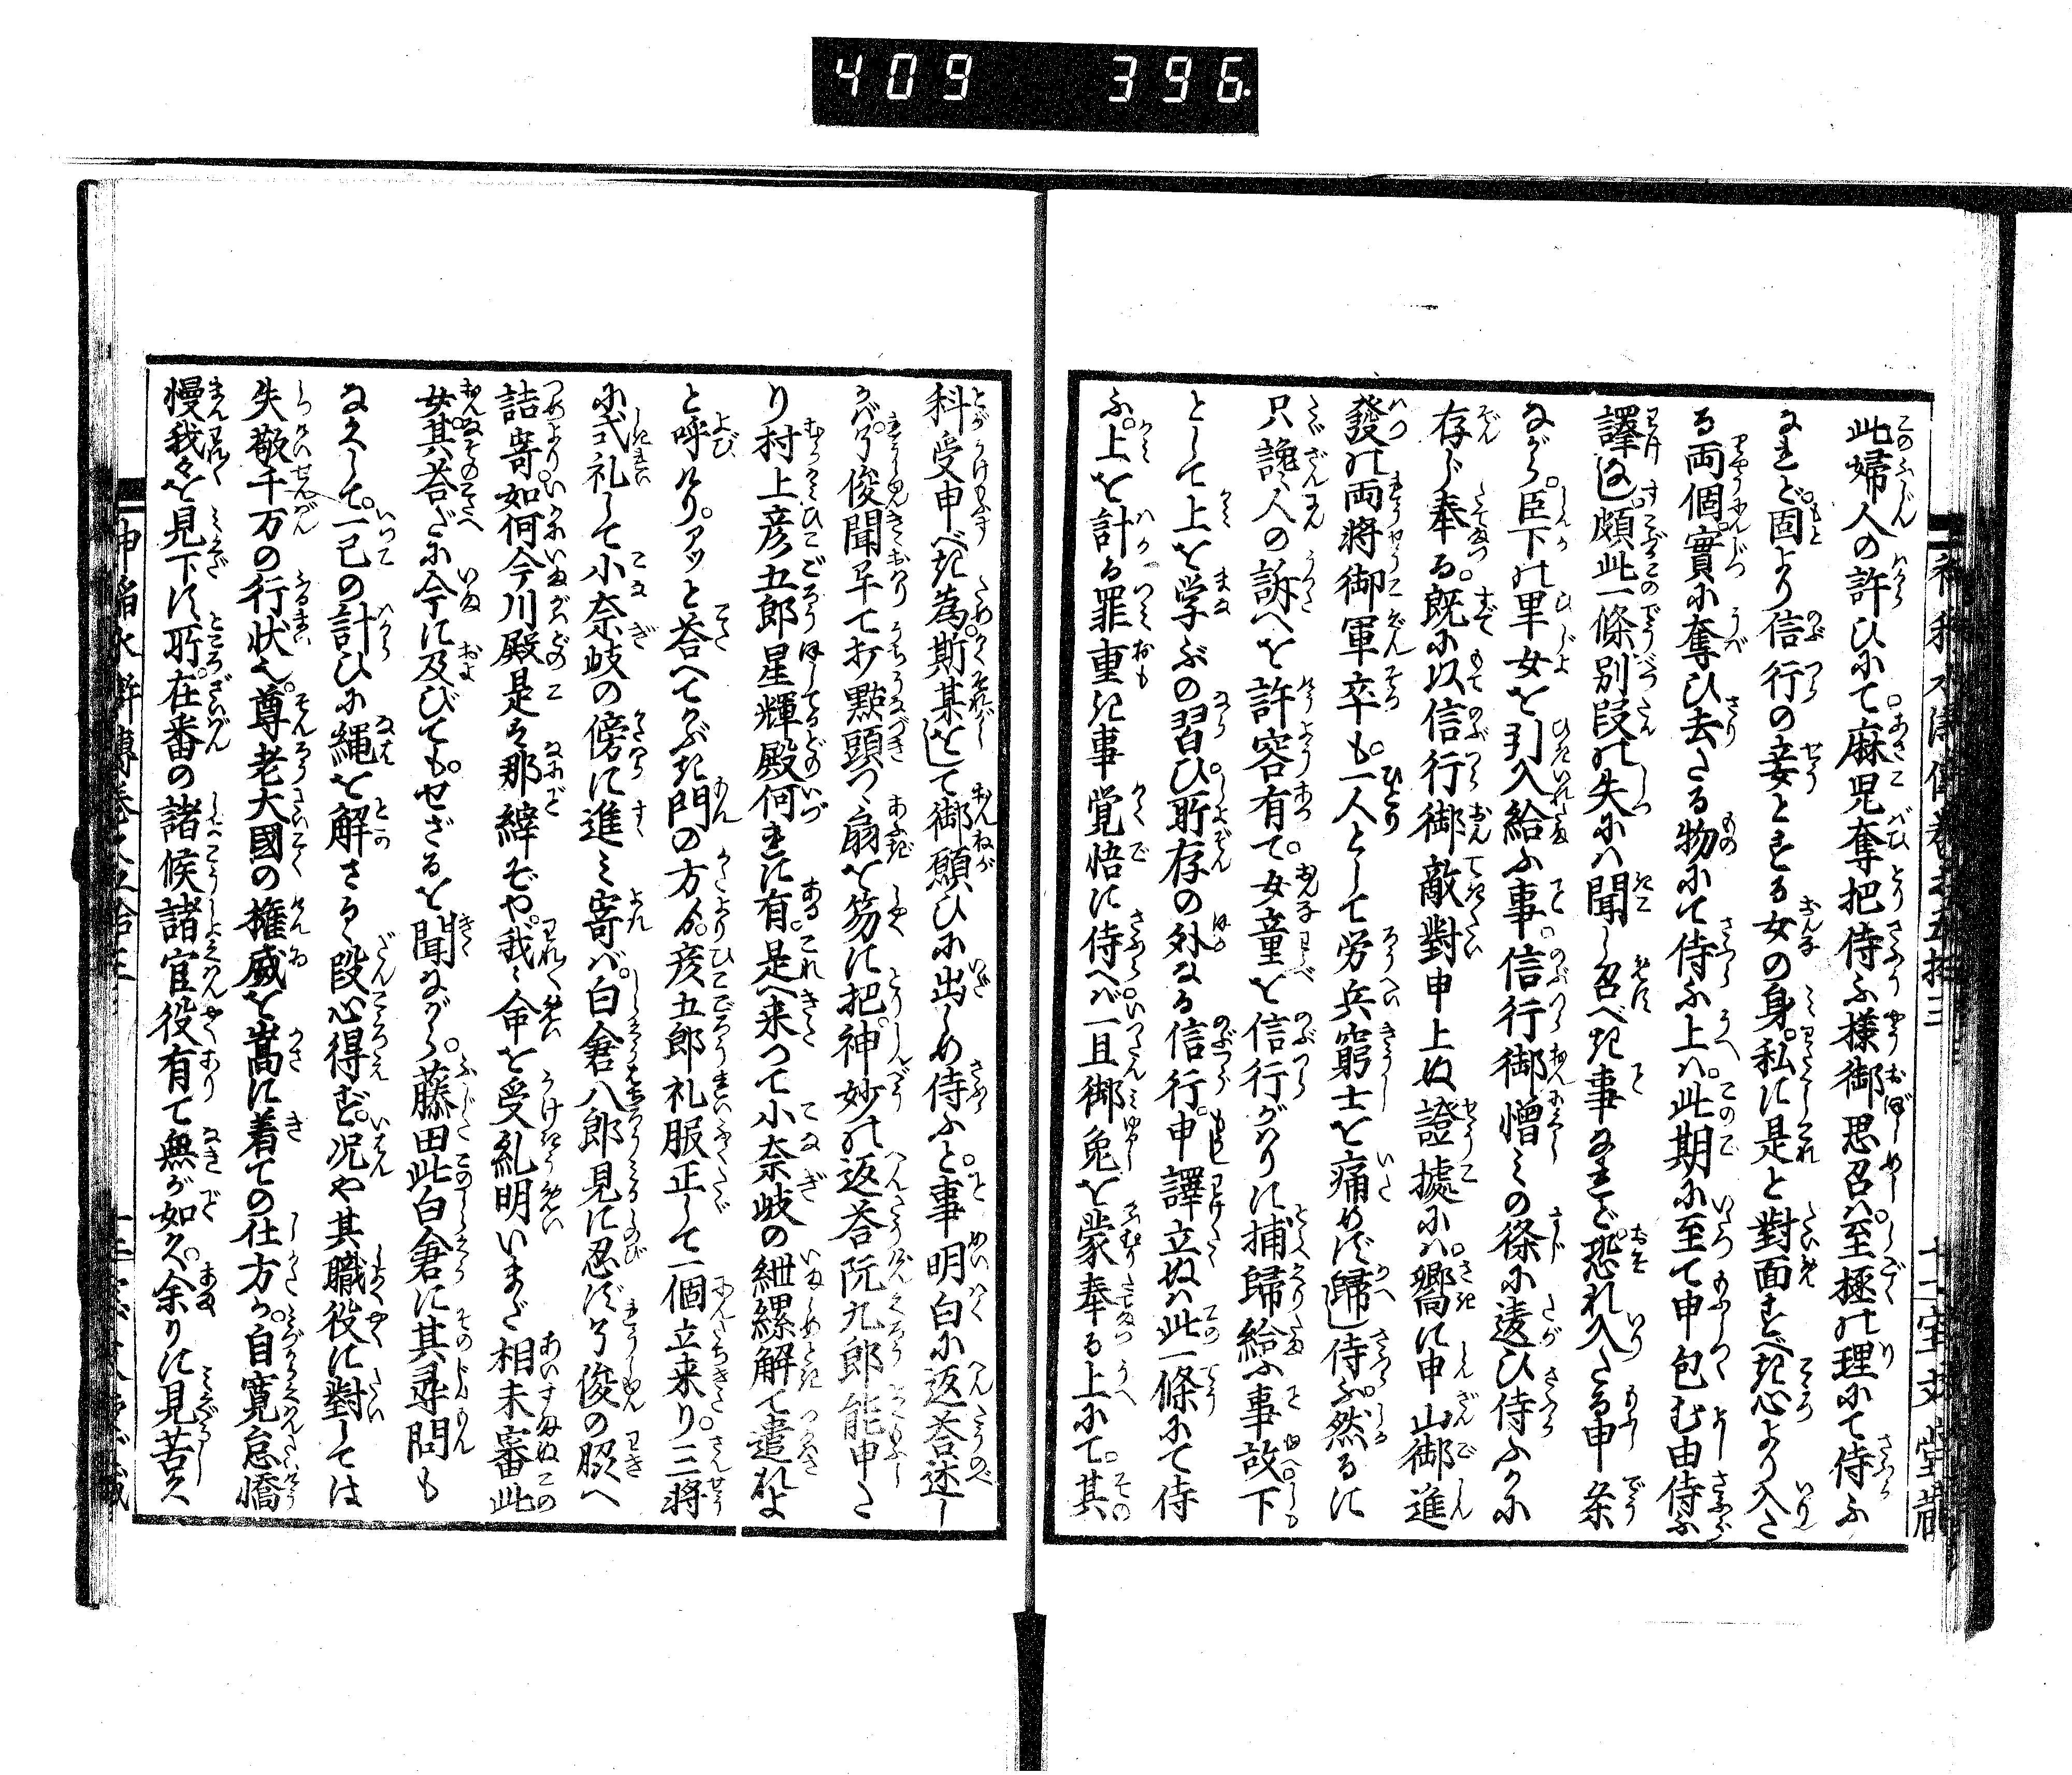 409 396.
此婦人の許ひにて麻児奪把侍ふ様御思召ハ至極の理にて侍ふ
なれど。固より信行の妾とする女の身。私に是と對面すべき心より入た
る両個。實に奪ひ去たる物にて侍ふ上ハ。此期に至て申包む由侍ふ
譯なし。頗此一條別段の失にハ聞し召べき事なれど恐れ入たる申条
ながら。臣下の卑女を引入給ふ事。信行御憎ミの條に遠ひ侍ふかに
存じ奉る。既に以信行御敵對申上ぬ證據にハ。嚮に申山御進
發の両将御軍卒も。一人として労兵窮士を痛めず歸し侍ふ。然るに
只讒人の訴へを許容有て。女童を信行がハりに捕歸給ふ事故下
として上を学ぶの習ひ。所存の外なる信行。申譯立ぬハ此一條にて侍
ふ。上を計る罪重き事覚悟に侍へバ一旦御免を蒙奉る上にて。其
科受申べき為。斯某をして御願ひに出しめ侍ふと。事明白に返答述し
かバ。了俊聞畢て打點頭つゝ扇を笏に把。神妙の返答阮九郎能申た
り村上彦五郎星輝殿何れに有。是へ来つて小奈岐の紲縲解て遣れよ
と呼ハり。アッと答へてかぶき門の方ゟ。彦五郎礼服正して一個立来り。三将
に式礼して小奈岐の傍に進ミ寄バ。白倉八郎見に忍ず了俊の照へ
詰寄如何今川殿是ハ那緯ぞや。我ゝ命を受糺明いまだ相未審此
女。其答だに今に及びても。せざるを聞ながら。藤田此白倉に其尋問も
なくして。一己の計ひに縄を解さるゝ段心得ず。况や其職役に對しては
失敬千万の行状也。尊老大國の権威を嵩に着ての仕方か。自寛怠憍
慢我々を見下に所。在番の諸候諸官役有て無が如く。余りに見苦く